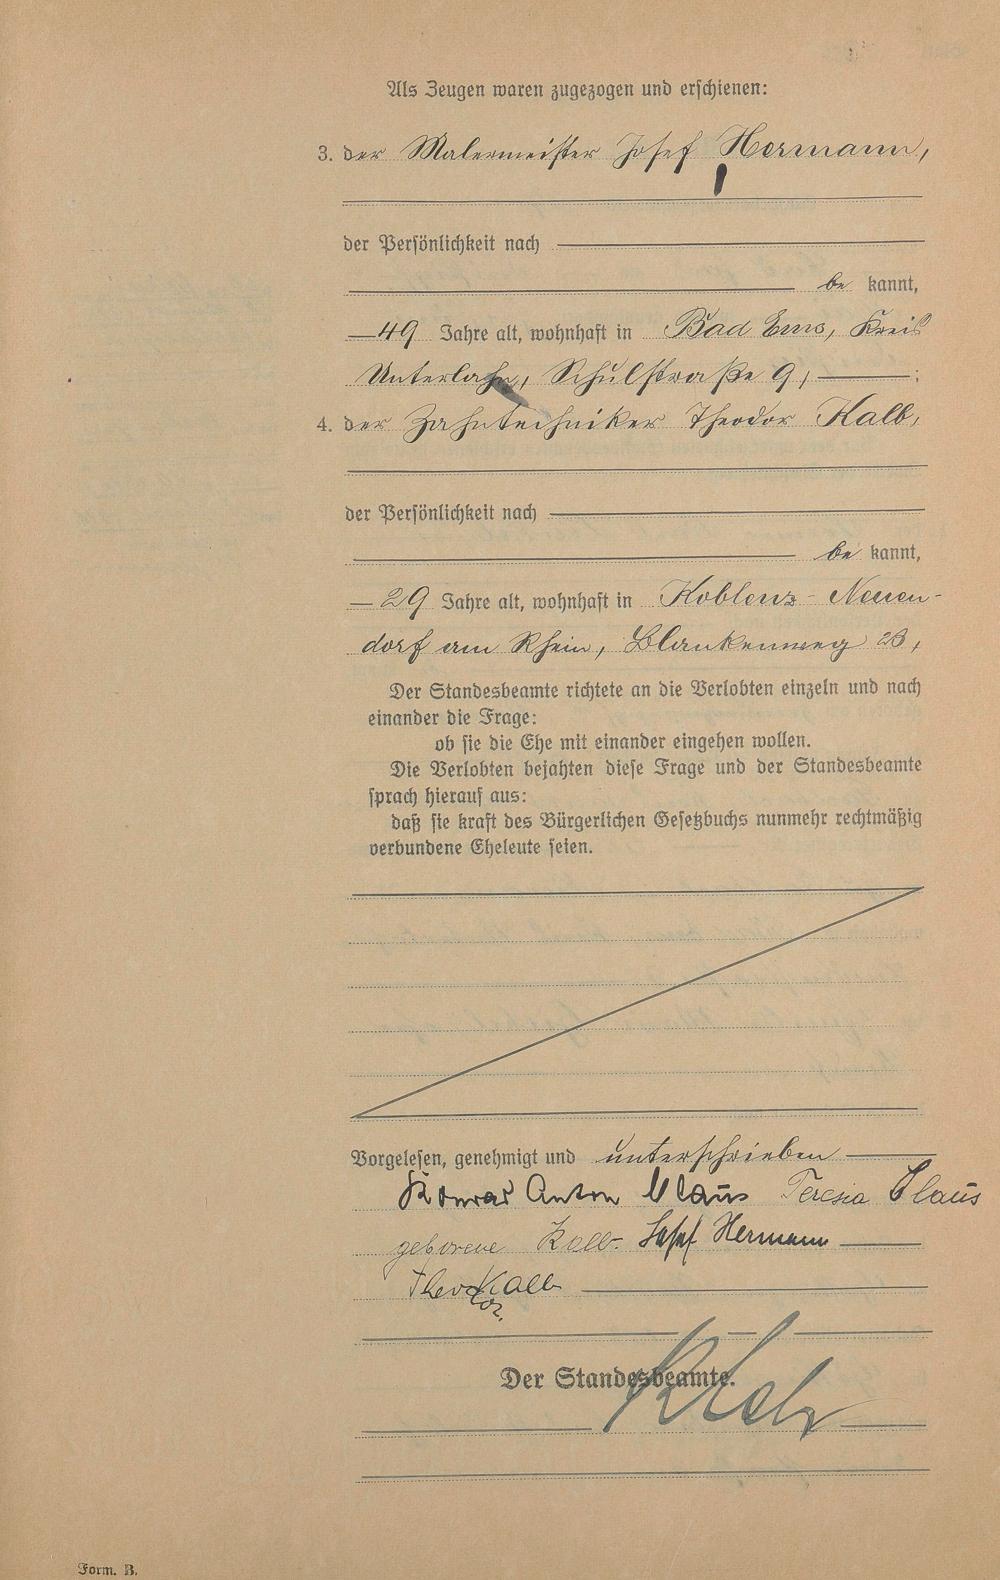 Als Zeugen waren zugezogen und erschienen:
3. der Malermeister Josef Hermann,
der Persönlichkeit nach
be kannt,
49 Jahre alt, wohnhaft in Bad Ems, Kreis
Unterlahn, Schulstraße 9, ;
4. der Zahntechniker Theodor Kalb,
der Persönlichkeit nach
be kannt,
29 Jahre alt, wohnhaft in Koblenz-Neuen-
dorf am Rhein, Blankenweg 2B,
Der Standesbeamte richtete an die Verlobten einzeln und nach
einander die Frage:
ob sie die Ehe mit einander eingehen wollen.
Die Verlobten bejahten diese Frage und der Standesbeamte
sprach hierauf aus:
daß sie kraft des Bürgerlichen Gesetzbuchs nunmehr rechtmäßig
verbundene Eheleute seien.
Vorgelesen, genehmigt und unterschrieben
Konrad Anton Claus Teresia Claus
geborene Kalb. Josef Hermann
Theodor Kalb
Der Standesbeamte.
Form. B.